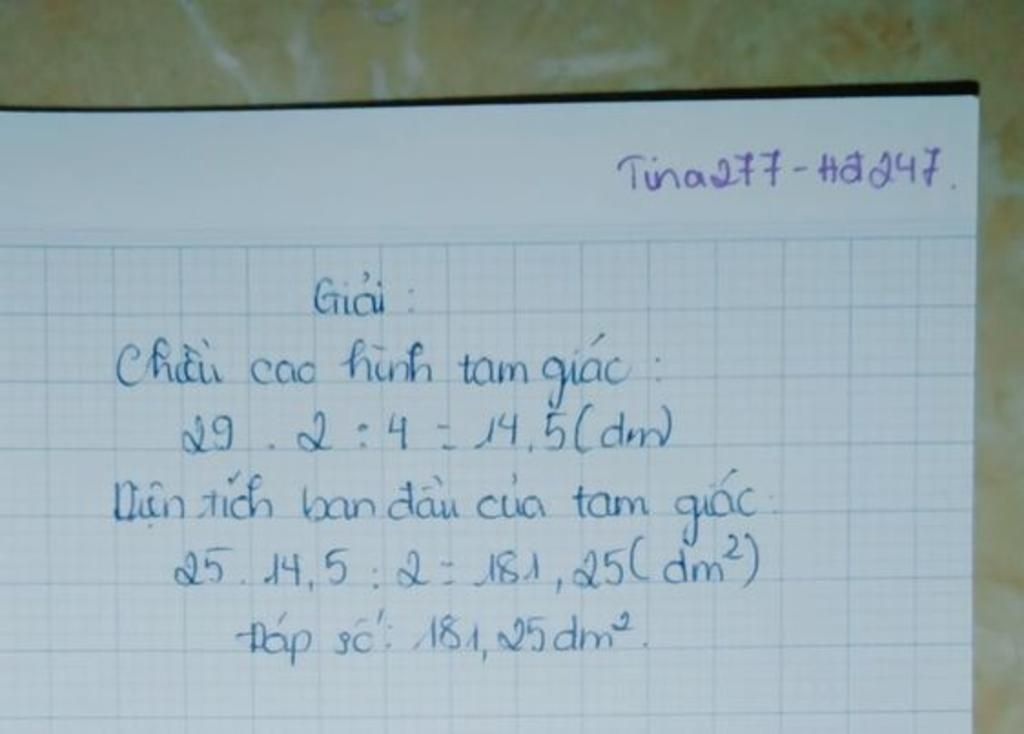 Tina277-Hđ247.
Giải :
Chiều cao hình tam giác :
29 . 2 : 4 = 14,5(dm)
Diện tích ban đầu của tam giác :
25 . 14,5 : 2 = 181,25(dm²)
Đáp số : 181,25dm².